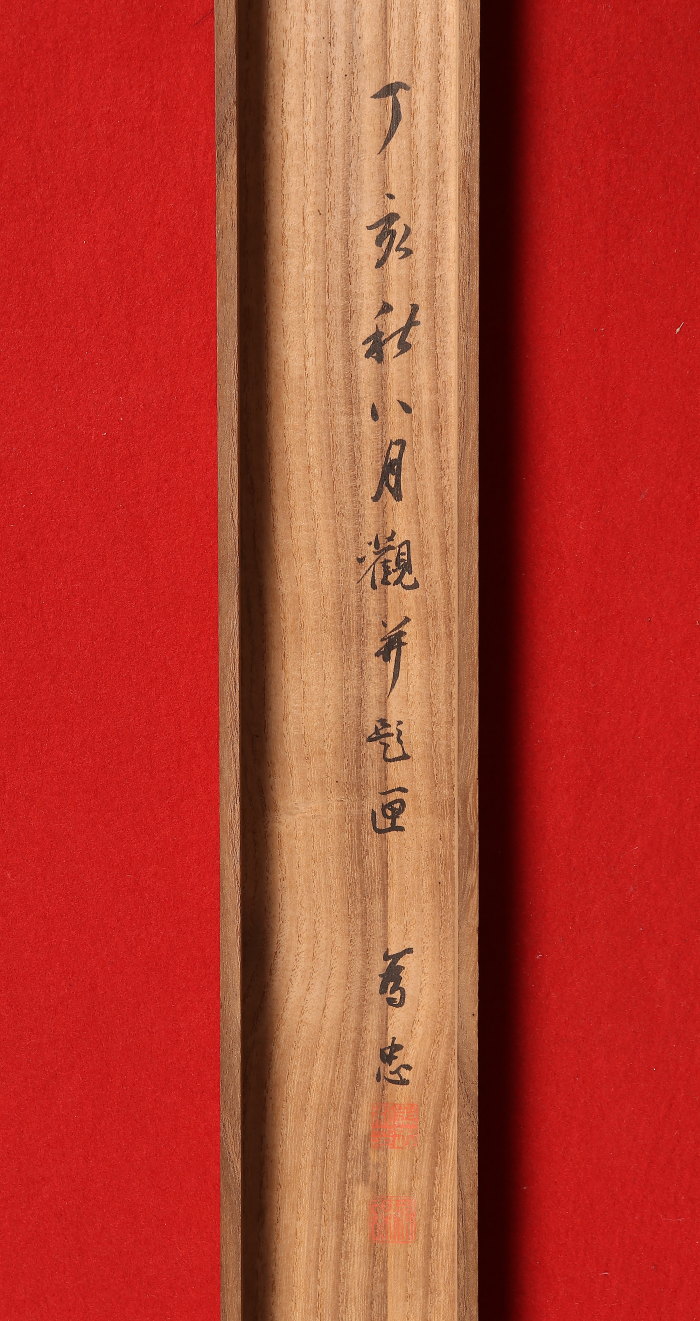 丁亥秋八月觀并題匣 篤忠